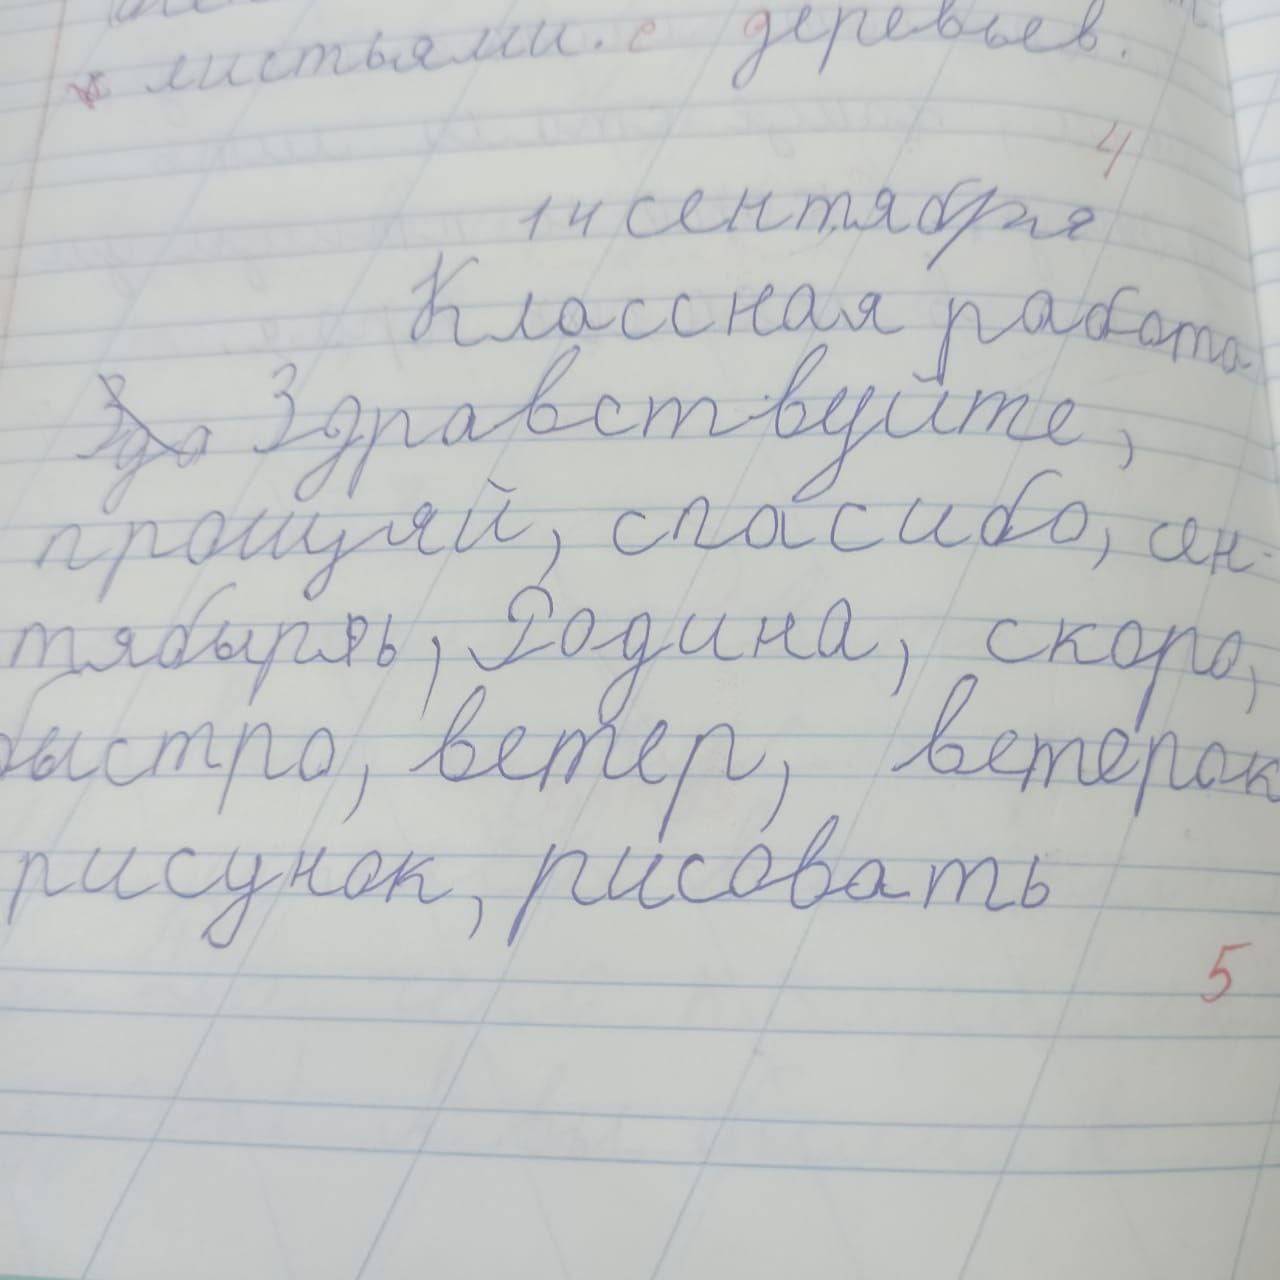 листьями. с деревьев.
4
14 сентября
Классная работа.
Здравствуйте,
прощяй, спасибо, сен-
тябырь, Родина, скоро,
быстро, ветер, ветерок
рисунок, рисовать
5